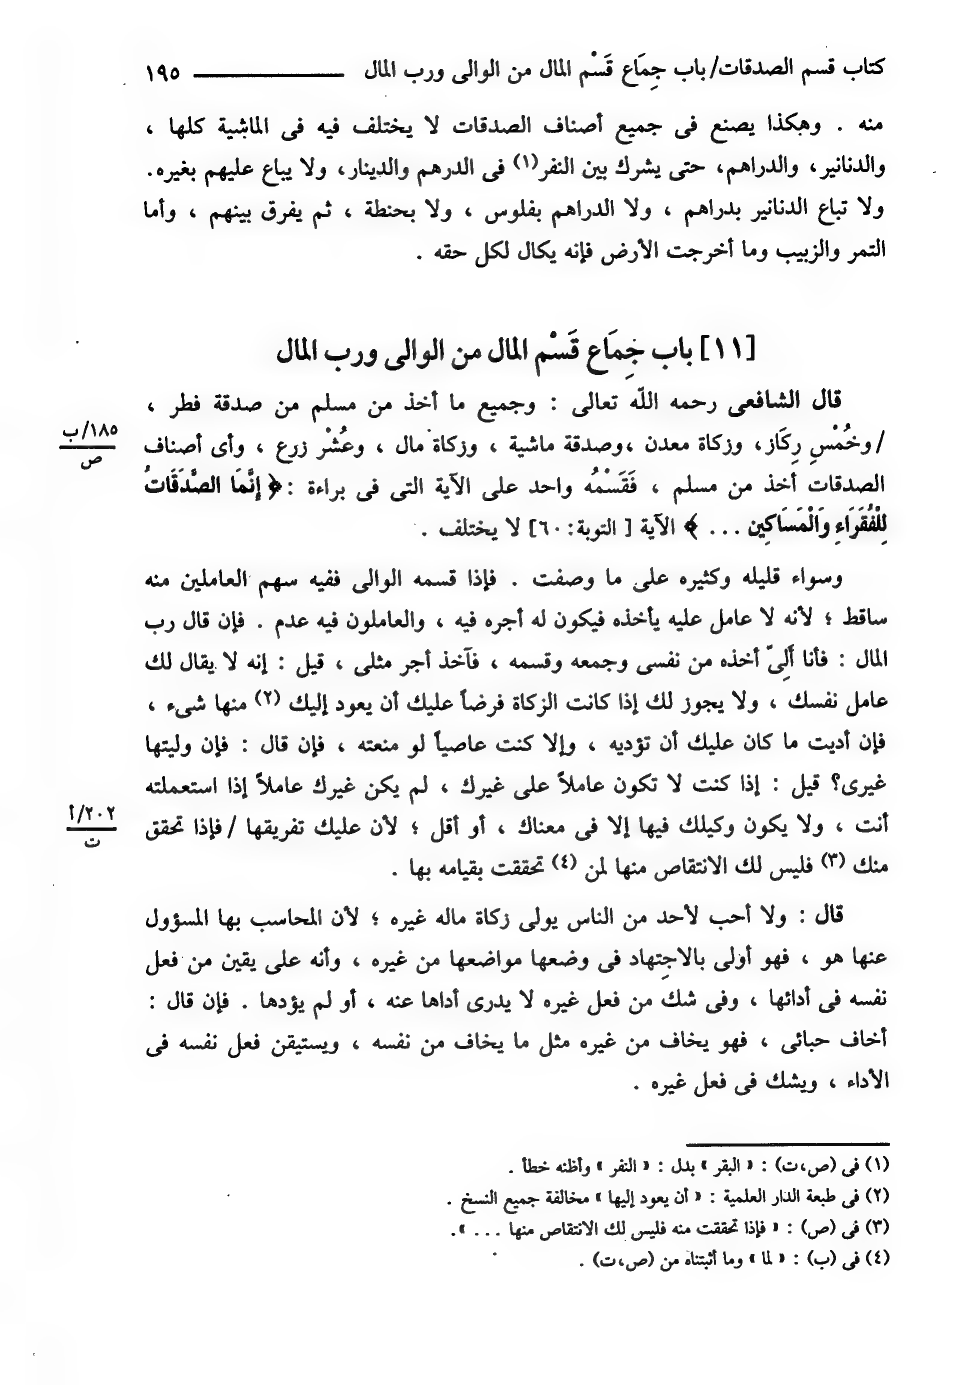 كتاب قسم الصدقات/ باب جِمَاع قَسْم المال من الوالى ورب المال ١٩٥
منه . وهكذا يصنع فى جميع أصناف الصدقات لا يختلف فيه فى الماشية كلها ،
والدنانير، والدراهم، حتى يشرك بين النفر(١) فى الدرهم والدينار، ولا يباع عليهم بغيره.
ولا تباع الدنانير بدراهم ، ولا الدراهم بفلوس ، ولا بحنطة ، ثم يفرق بينهم ، وأما
التمر والزبيب وما أخرجت الأرض فإنه يكال لكل حقه .
[١١] باب جِمَاع قَسْم المال من الوالى ورب المال
قال الشافعى رحمه اللّه تعالى : وجميع ما أخذ من مسلم من صدقة فطر ،
/وخُمْسِ رِكَاز، وزكاة معدن ،وصدقة ماشية ، وزكاة مال ، وعُشْر زرع ، وأى أصناف
١٨٥/ب
ص
الصدقات أخذ من مسلم ، فَقَسْمُه واحد على الآية التى فى براءة :﴿ إِنَّمَا الصَّدَقَاتُ
لِلْفُقَرَاءِ وَالْمَسَاكِينِ ... ﴾ الآية [ التوبة: ٦٠] لا يختلف .
وسواء قليله وكثيره على ما وصفت . فإذا قسمه الوالى ففيه سهم العاملين منه
ساقط ؛ لأنه لا عامل عليه يأخذه فيكون له أجره فيه ، والعاملون فيه عدم . فإن قال رب
المال : فأنا أَلِىّ أخذه من نفسى وجمعه وقسمه ، فآخذ أجر مثلى ، قيل : إنه لا يقال لك
عامل نفسك ، ولا يجوز لك إذا كانت الزكاة فرضاً عليك أن يعود إليك (٢) منها شىء ،
فإن أديت ما كان عليك أن تؤديه ، وإلا كنت عاصياً لو منعته ، فإن قال : فإن وليتها
غيرى؟ قيل : إذا كنت لا تكون عاملاً على غيرك ، لم يكن غيرك عاملاً إذا استعملته
أنت ، ولا يكون وكيلك فيها إلا فى معناك ، أو أقل ؛ لأن عليك تفريقها /فإذا تحقق
٢٠٢/أ
ت
منك (٣) فليس لك الانتقاص منها لمن (٤) تحققت بقيامه بها .
قال : ولا أحب لأحد من الناس يولى زكاة ماله غيره ؛ لأن المحاسب بها المسؤول
عنها هو ، فهو أولى بالاجتهاد فى وضعها مواضعها من غيره ، وأنه على يقين من فعل
نفسه فى أدائها ، وفى شك من فعل غيره لا يدرى أداها عنه ، أو لم يؤدها . فإن قال :
أخاف حبائى ، فهو يخاف من غيره مثل ما يخاف من نفسه ، ويستيقن فعل نفسه فى
الأداء ، ويشك فى فعل غيره .
(١) فى (ص،ت) : « البقر » بدل : « النفر » وأظنه خطأ .
(٢) فى طبعة الدار العلمية : « أن يعود إليها » مخالفة جميع النسخ .
(٣) فى (ص) : « فإذا تحققت منه فليس لك الانتقاص منها . . . ».
(٤) فى (ب) : « لما » وما أثبتناه من (ص،ت) .